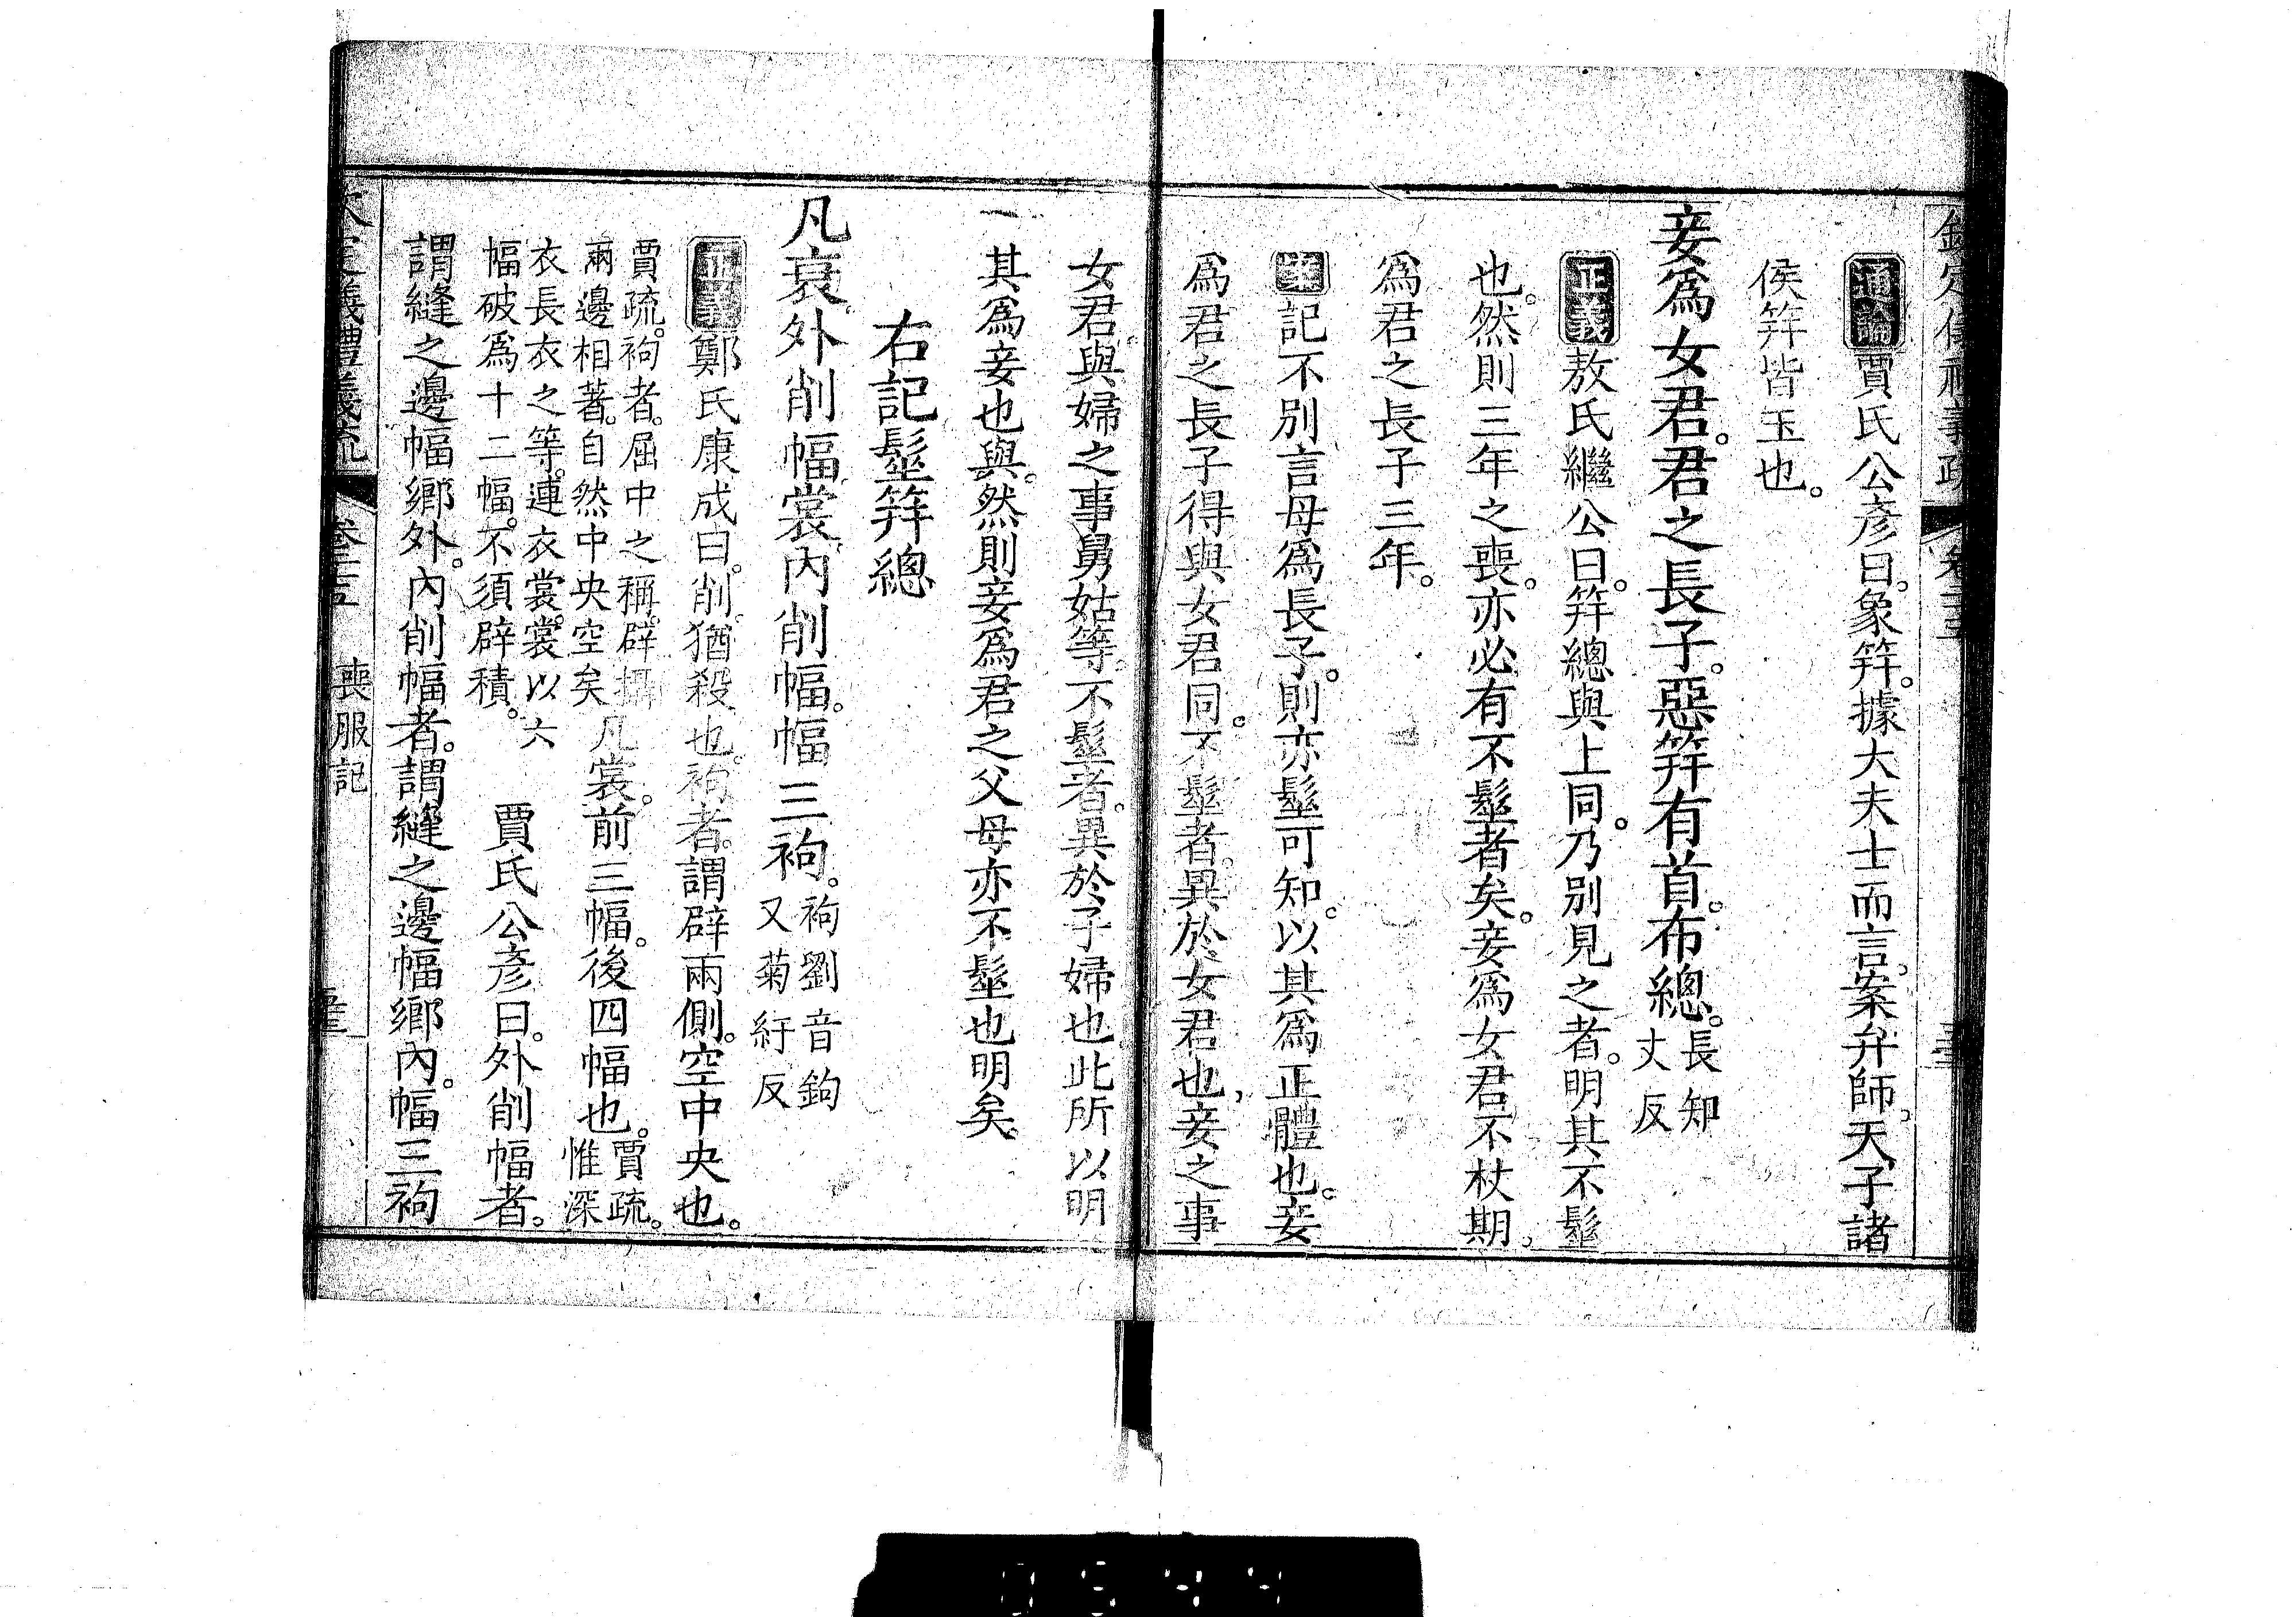 欽定儀禮義疏 卷二十五
通論賈氏公彥曰。象筓。據大夫士而言。案弁師。天子諸
侯筓皆玉也。
妾爲女君。君之長子。惡筓有首。布總。長知
丈反
正義敖氏繼公曰。筓總與上同。乃別見之者。明其不髽
也。然則三年之喪。亦必有不髽者矣。妾爲女君不杖期。
爲君之長子三年。
案記不別言母爲長子。則亦髽可知。以其爲正體也。妾
爲君之長子得與女君同。不髽者。異於女君也。妾之事
女君。與婦之事舅姑等。不髽者。異於子婦也此所以明
其爲妾也與。然則妾爲君之父母亦不髽也明矣。
右記髽筓總
凡衰。外削幅。裳。內削幅。幅三袧。袧劉音鉤
又菊紆反
正義鄭氏康成曰。削。猶殺也。袧者。謂辟兩側。空中央也。
賈疏。袧者。屈中之稱。辟攝
兩邊相著。自然中央空矣
凡裳。前三幅。後四幅也。賈疏。
惟深
衣長衣之等。連衣裳。裳以六
幅破爲十二幅。不須辟積。
賈氏公彥曰。外削幅者。
謂縫之邊幅鄉外。內削幅者。謂縫之邊幅鄉內。幅三袧
欽定儀禮義疏 卷二十五 喪服記